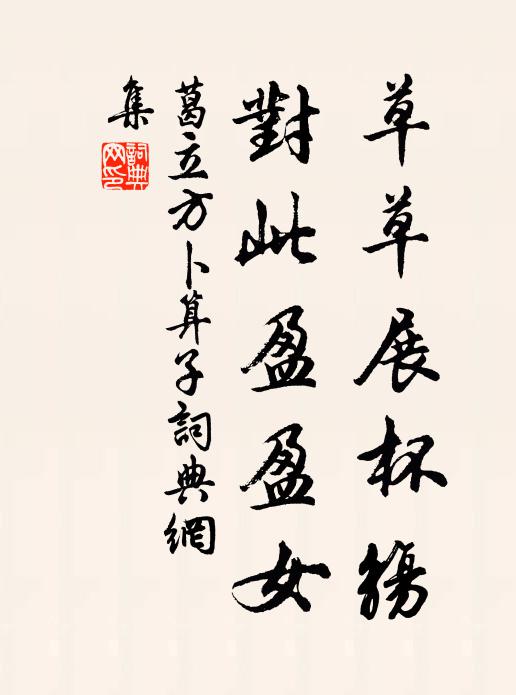 草草展杯觴
對此盈盈女
葛立方卜算子詞典網
集
詞典網印